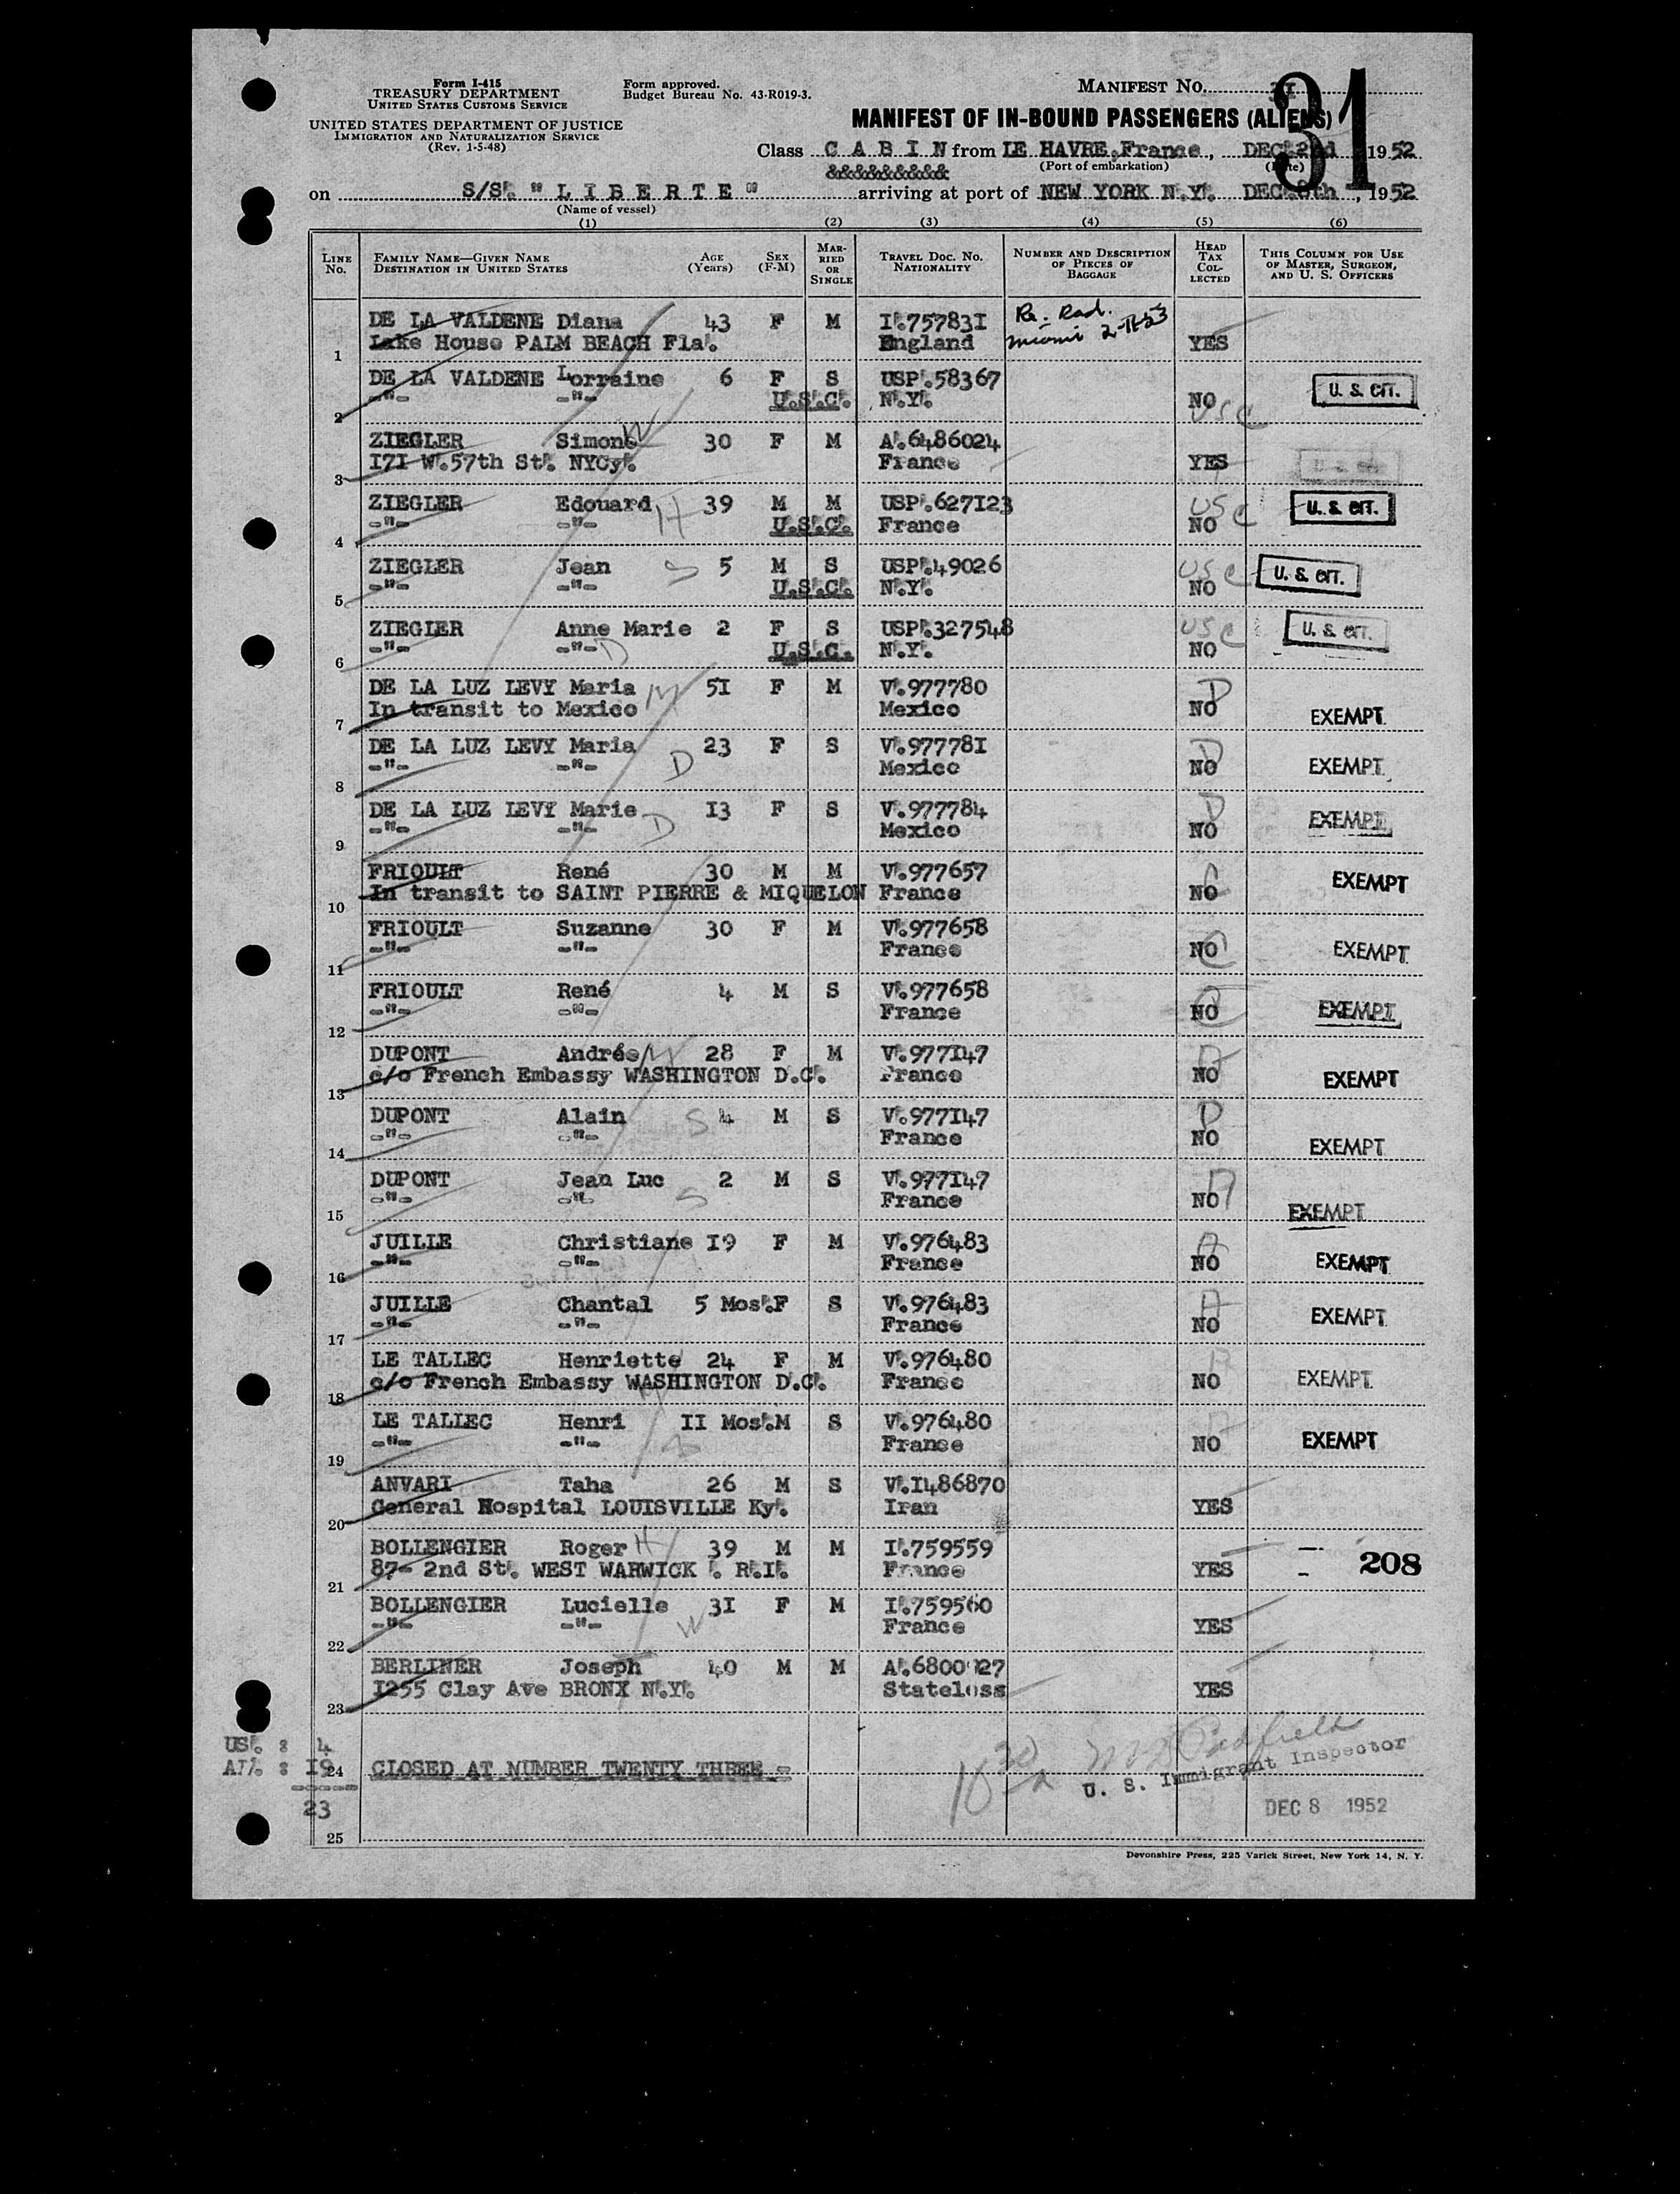 Form I-415
TREASURY DEPARTMENT
UNITED STATES CUSTOMS SERVICE
UNITED STATES DEPARTMENT OF JUSTICE
IMMIGRATION AND NATURALIZATION SERVICE
(Rev. 1-5-48)
Form approved.
Budget Bureau No. 43-R019-3.
MANIFEST No. 31
31
MANIFEST OF IN-BOUND PASSENGERS (ALIENS)
Class C A B I N from LE HAVRE, France, DEC. 2nd 1952
(Port of embarkation) (Date)
on S/S. " L I B E R T E " arriving at port of NEW YORK N.Y. DEC. 8th, 1952
(Name of vessel)
(1) (2) (3) (4) (5) (6)
LINE No. FAMILY NAME—GIVEN NAME DESTINATION IN UNITED STATES AGE (Years) SEX (F-M) MARRIED OR SINGLE TRAVEL DOC. NO. NATIONALITY NUMBER AND DESCRIPTION OF PIECES OF BAGGAGE HEAD TAX COLLECTED THIS COLUMN FOR USE OF MASTER, SURGEON, AND U. S. OFFICERS
DE LA VALDENE Diana 43 F M I.757831 Re: Rad.
1 Lake House PALM BEACH Fla. England Miami 2-11-53 YES
DE LA VALDENE Lorraine 6 F S USP.58367 U. S. CIT.
2 -"- -"- U.S.C. N.Y. NO USC
ZIEGLER Simone W 30 F M A.6486024
3 171 W.57th St. NYCy. France YES U. S. CIT.
ZIEGLER Edouard H 39 M M USP.627123 USC U. S. CIT.
4 -"- -"- U.S.C. France NO
ZIEGLER Jean S 5 M S USP.49026 USC U. S. CIT.
5 -"- -"- U.S.C. N.Y. NO
ZIEGLER Anne Marie 2 F S USP.327548 USC U. S. CIT.
6 -"- -"- D U.S.C. N.Y. NO
DE LA LUZ LEVY Maria M 51 F M V.977780 D
7 In transit to Mexico Mexico NO EXEMPT
DE LA LUZ LEVY Maria D 23 F S V.977781 D
8 -"- -"- Mexico NO EXEMPT
DE LA LUZ LEVY Marie D 13 F S V.977784 D
9 -"- -"- Mexico NO EXEMPT
FRIOULT René 30 M M V.977657
10 In transit to SAINT PIERRE & MIQUELON France NO C EXEMPT
FRIOULT Suzanne 30 F M V.977658
11 -"- -"- France NO C EXEMPT
FRIOULT René 4 M S V.977658
12 -"- -"- France NO C EXEMPT
DUPONT Andrée M 28 F M V.977147 A
13 c/o French Embassy WASHINGTON D.C. France NO EXEMPT
DUPONT Alain S 4 M S V.977147 D
14 -"- -"- France NO EXEMPT
DUPONT Jean Luc S 2 M S V.977147
15 -"- -"- France NO A EXEMPT
JUILLE Christiane 19 F M V.976483 A
16 -"- -"- France NO EXEMPT
JUILLE Chantal 5 Mos. F S V.976483 A
17 -"- -"- France NO EXEMPT
LE TALLEC Henriette 24 F M V.976480 A
18 c/o French Embassy WASHINGTON D.C. France NO EXEMPT
LE TALLEC Henri 11 Mos. M S V.976480 A
19 -"- -"- S France NO EXEMPT
ANVARI Taha 26 M S V.1486870
20 General Hospital LOUISVILLE Ky. Iran YES
BOLLENGIER Roger H 39 M M I.759559
21 87- 2nd St. WEST WARWICK . R.I. France YES 208
BOLLENGIER Lucielle 31 F M I.759560
22 -"- -"- W France YES
BERLINER Joseph 40 M M
23 1255 Clay Ave BRONX N.Y. Stateless YES
US. : 4
Al. : 19
24 CLOSED AT NUMBER TWENTY THREE -
U. S. Immigrant Inspector
23
DEC 8 1952
25
Devonshire Press, 225 Varick Street, New York 14, N. Y.